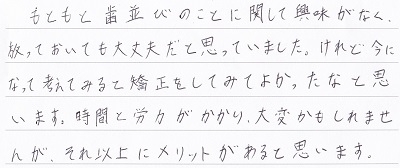 もともと歯並びのことに関して興味がなく、
放っておいても大丈夫だと思っていました。けれど今に
なって考えてみると矯正をしてみてよかったなと思
います。時間と労力がかかり、大変かもしれませ
んが、それ以上にメリットがあると思います。